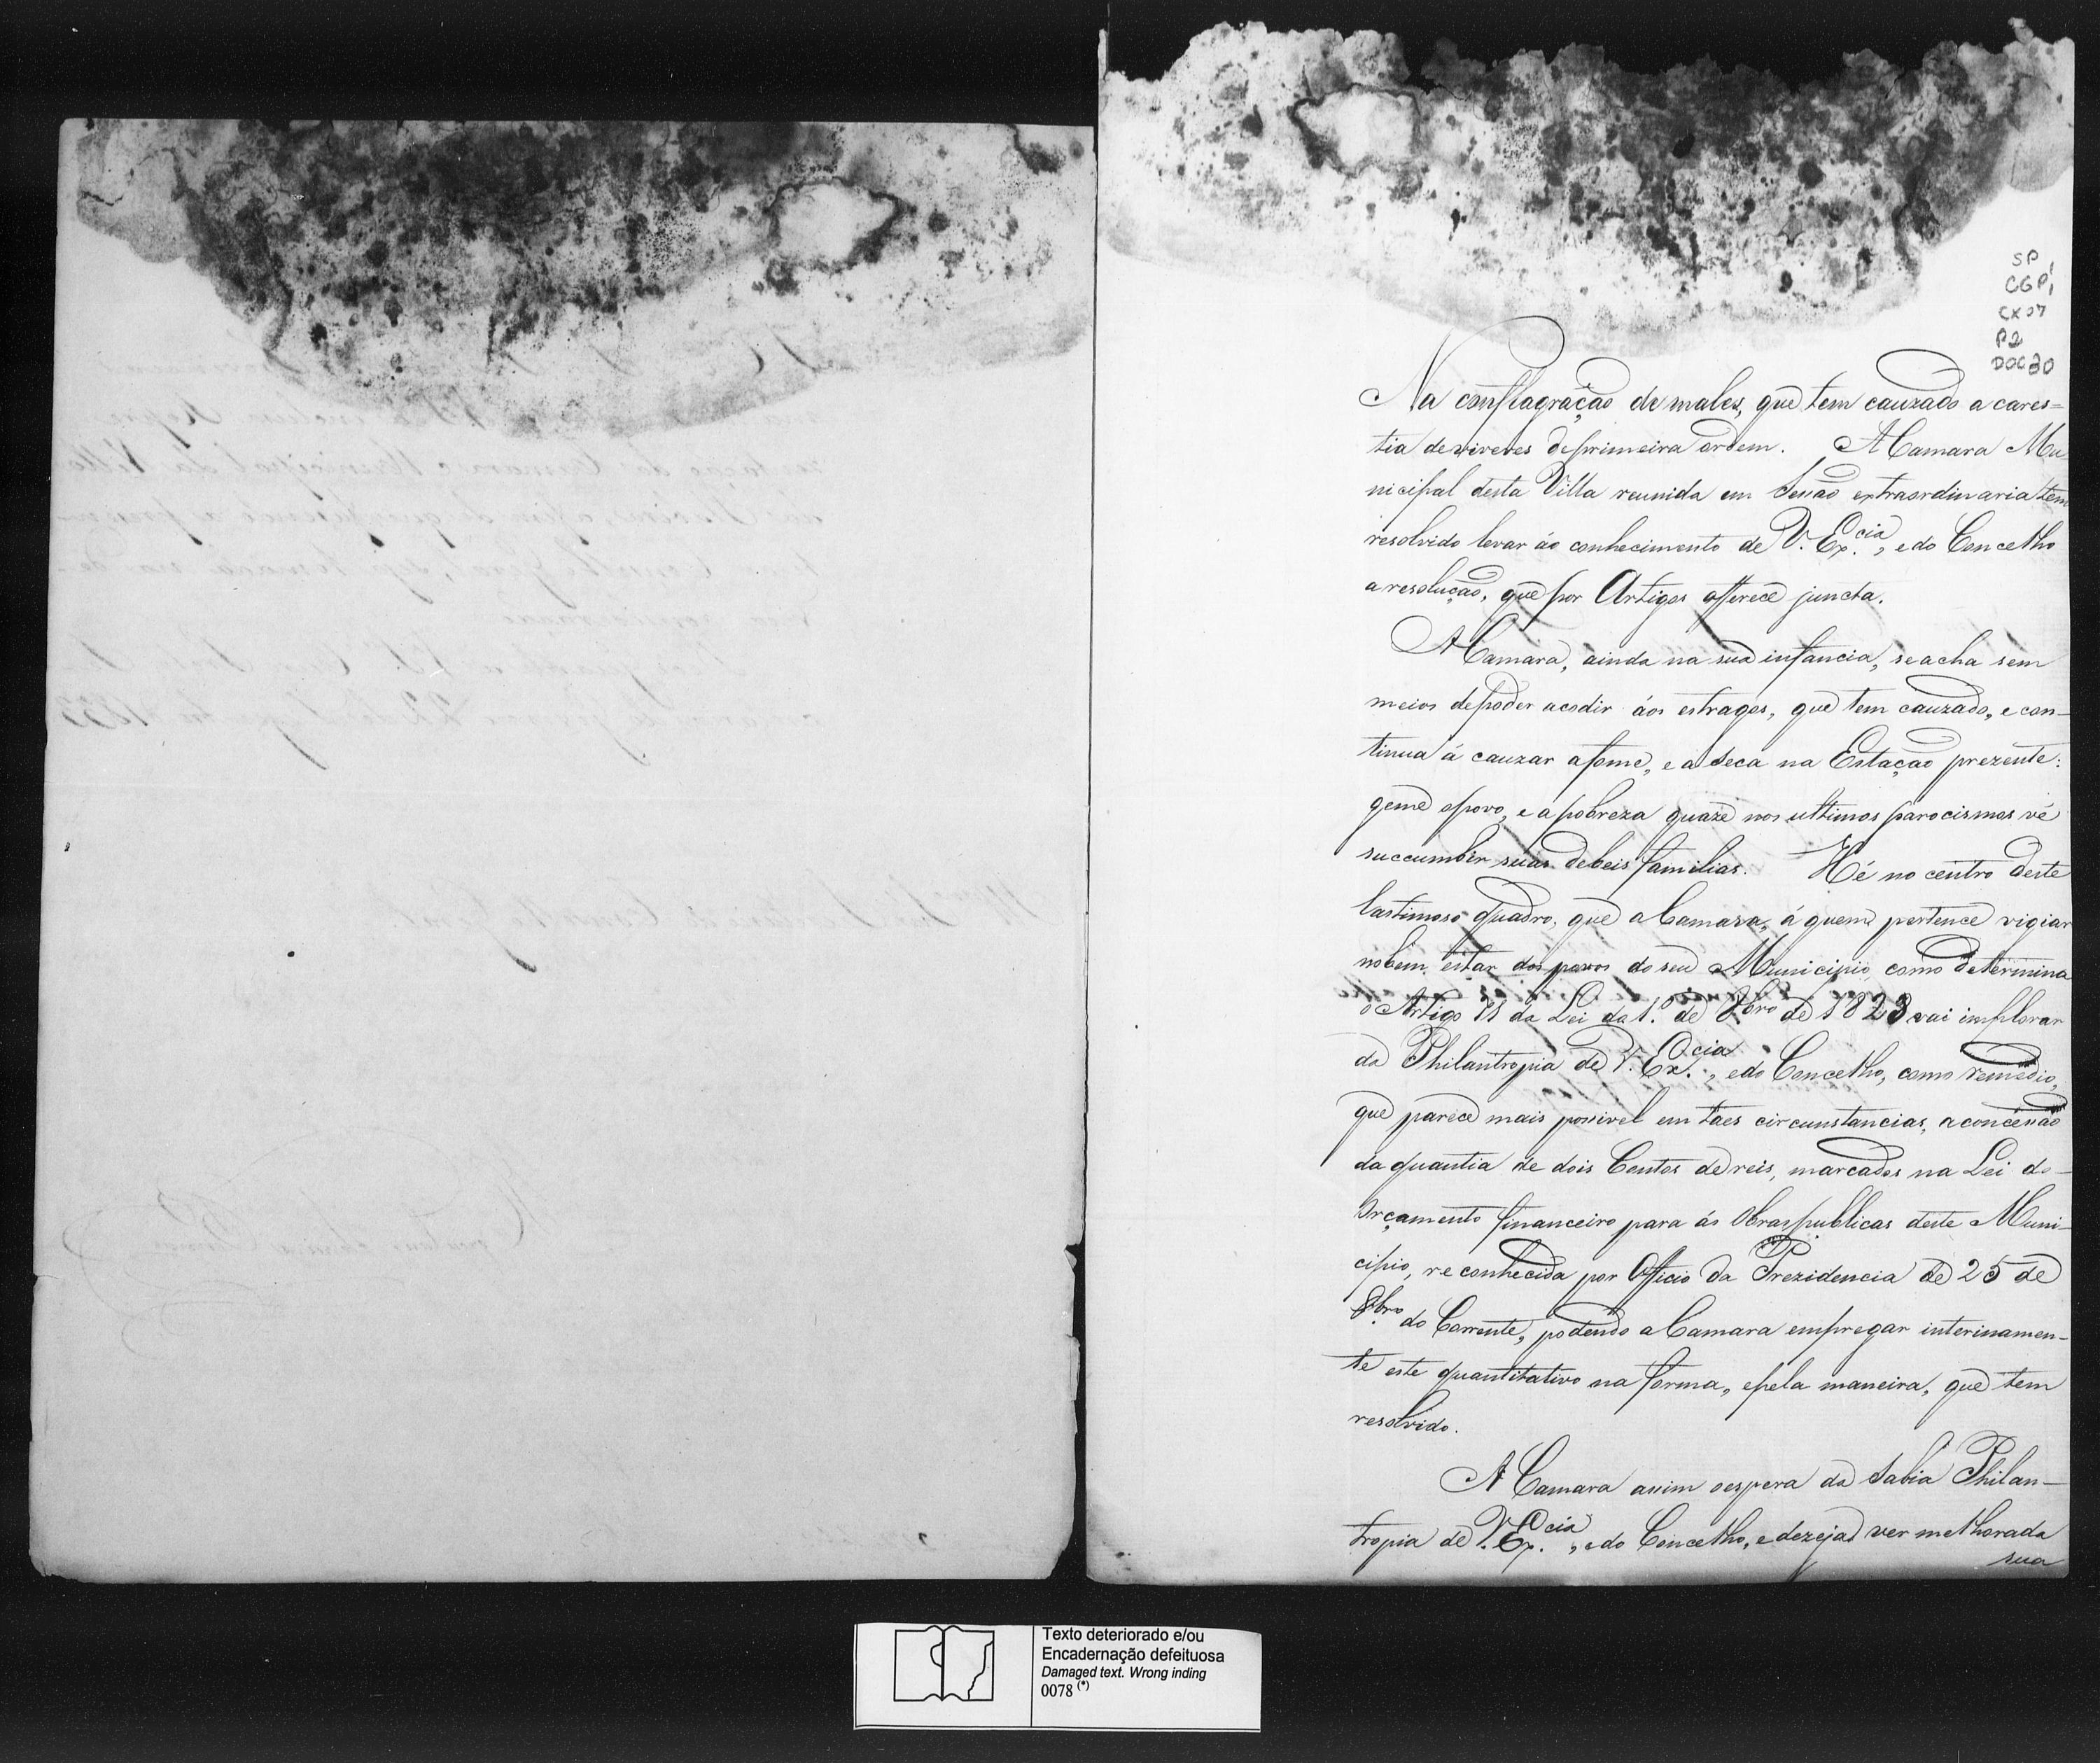 SP,
CGP,
CX07
P2
DOC30
Na conflagração de males, que tem cauzado a cares=
tia de viveres de primeira ordem. A Camara Mu
nicipal desta Villa reunida em Sessão extraordinaria tem
resolvido levar áo conhecimento de V. Ex.cia, e do Concelho
a resolução, que por Artigos offerece juncta.
A Camara, ainda na sua infancia, se acha sem
meios de poder acodir áos estragos, que tem cauzado, e con-
tinua á cauzar a fome, e a seca na Estação prezente:
geme o povo, e a pobreza quaze nos ultimos parocismos vê
succumbir suas debeis familias. Hé no centro deste
lastimoso quadro, que a Camara, á quem pertence vigiar
no bem estar dos povos do seu Municipio, como determina
o Artigo 71 da Lei do 1.º de 8bro de 1828 vai implorar
da Philantropia de V. Ex.cia, e do Concelho, como remedio,
que parece mais possivel em taes circumstancias, a concessão
da quantia de dois Contos de reis, marcados na Lei do
Orçamento financeiro para ás Obras publicas deste Muni-
cipio, reconhecida por Officio da Prezidencia de 25 de
8.bro do Corrente, podendo a Camara empregar interinamen-
te este quantitativo na forma, e pela maneira, que tem
resolvido.
A Camara assim o espera da Sabia Philan-
tropia de V. Ex.cia, e do Concelho, e dezeja ver melhorada
sua
Texto deteriorado e/ou
Encadernação defeituosa
Damaged text. Wrong inding
0078 (*)